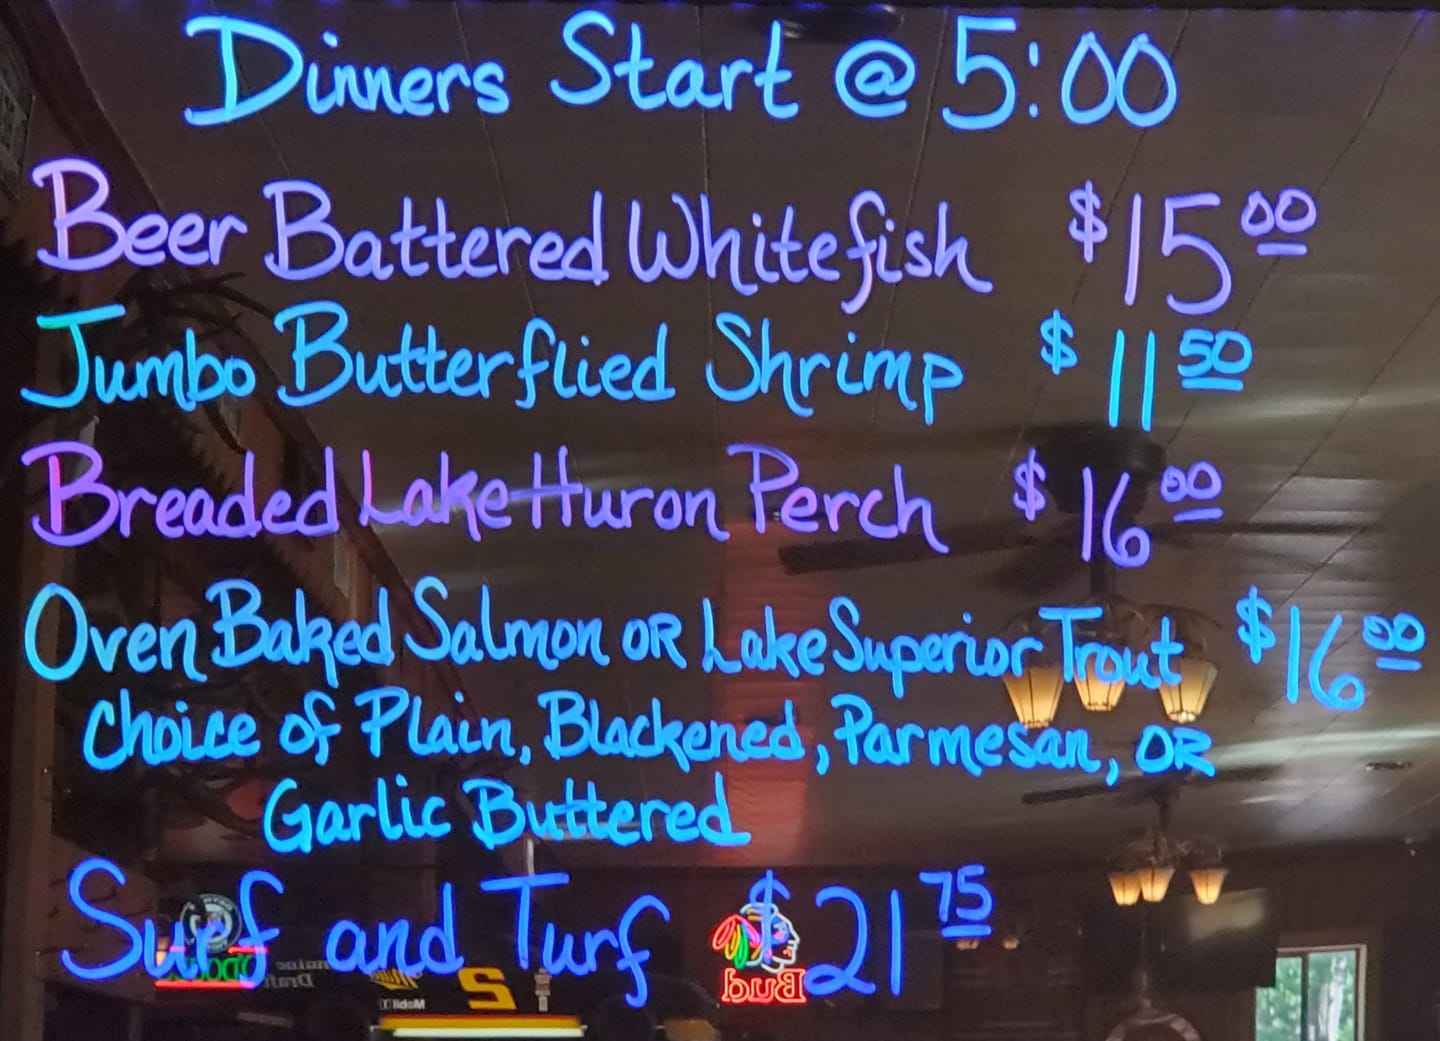 Dinners Start @ 5:00
Beer Battered Whitefish $15.00
Jumbo Butterflied Shrimp $11.50
Breaded Lake Huron Perch $16.00
Oven Baked Salmon OR Lake Superior Trout $16.00
Choice of Plain, Blackened, Parmesan, OR
Garlic Buttered
Surf and Turf $21.75
Genuine
Draft
Miller
Mobil 1
2
Bud